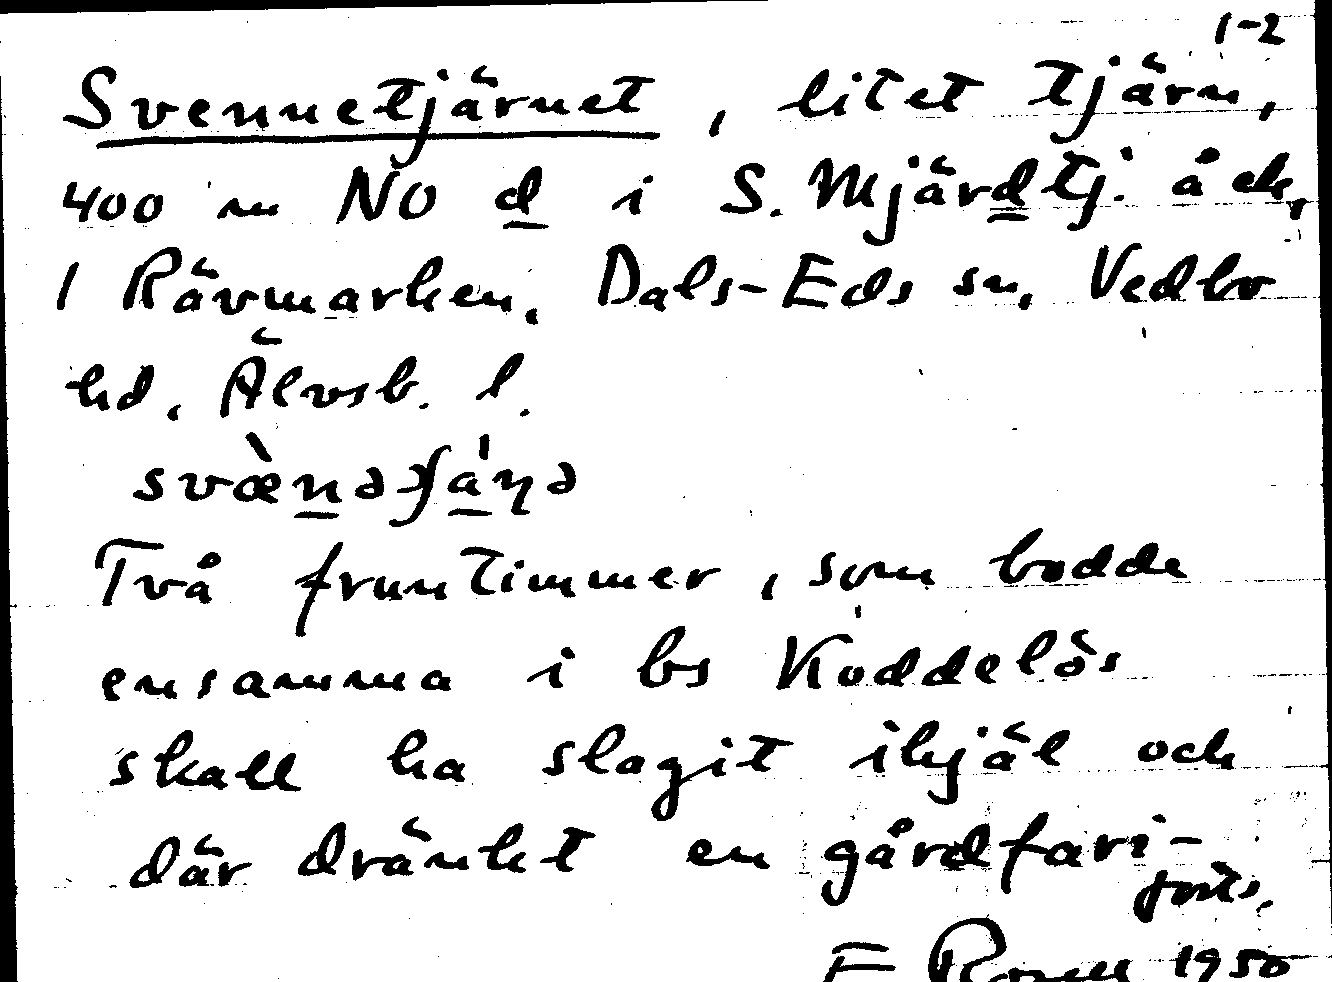 1-2
Svennetjärnet, litet tjärn,
400 m NO d i S. Mjärdtj. å ek,
1 Rävmarken, Dals-Eds sn, Vedbo
hd, Älvsb. l.
Två fruntimmer, som bodde
ensamma i bs Koddelös
skall ha slagit ihjäl och
där dränkt en gårdfari-
forts.
1950